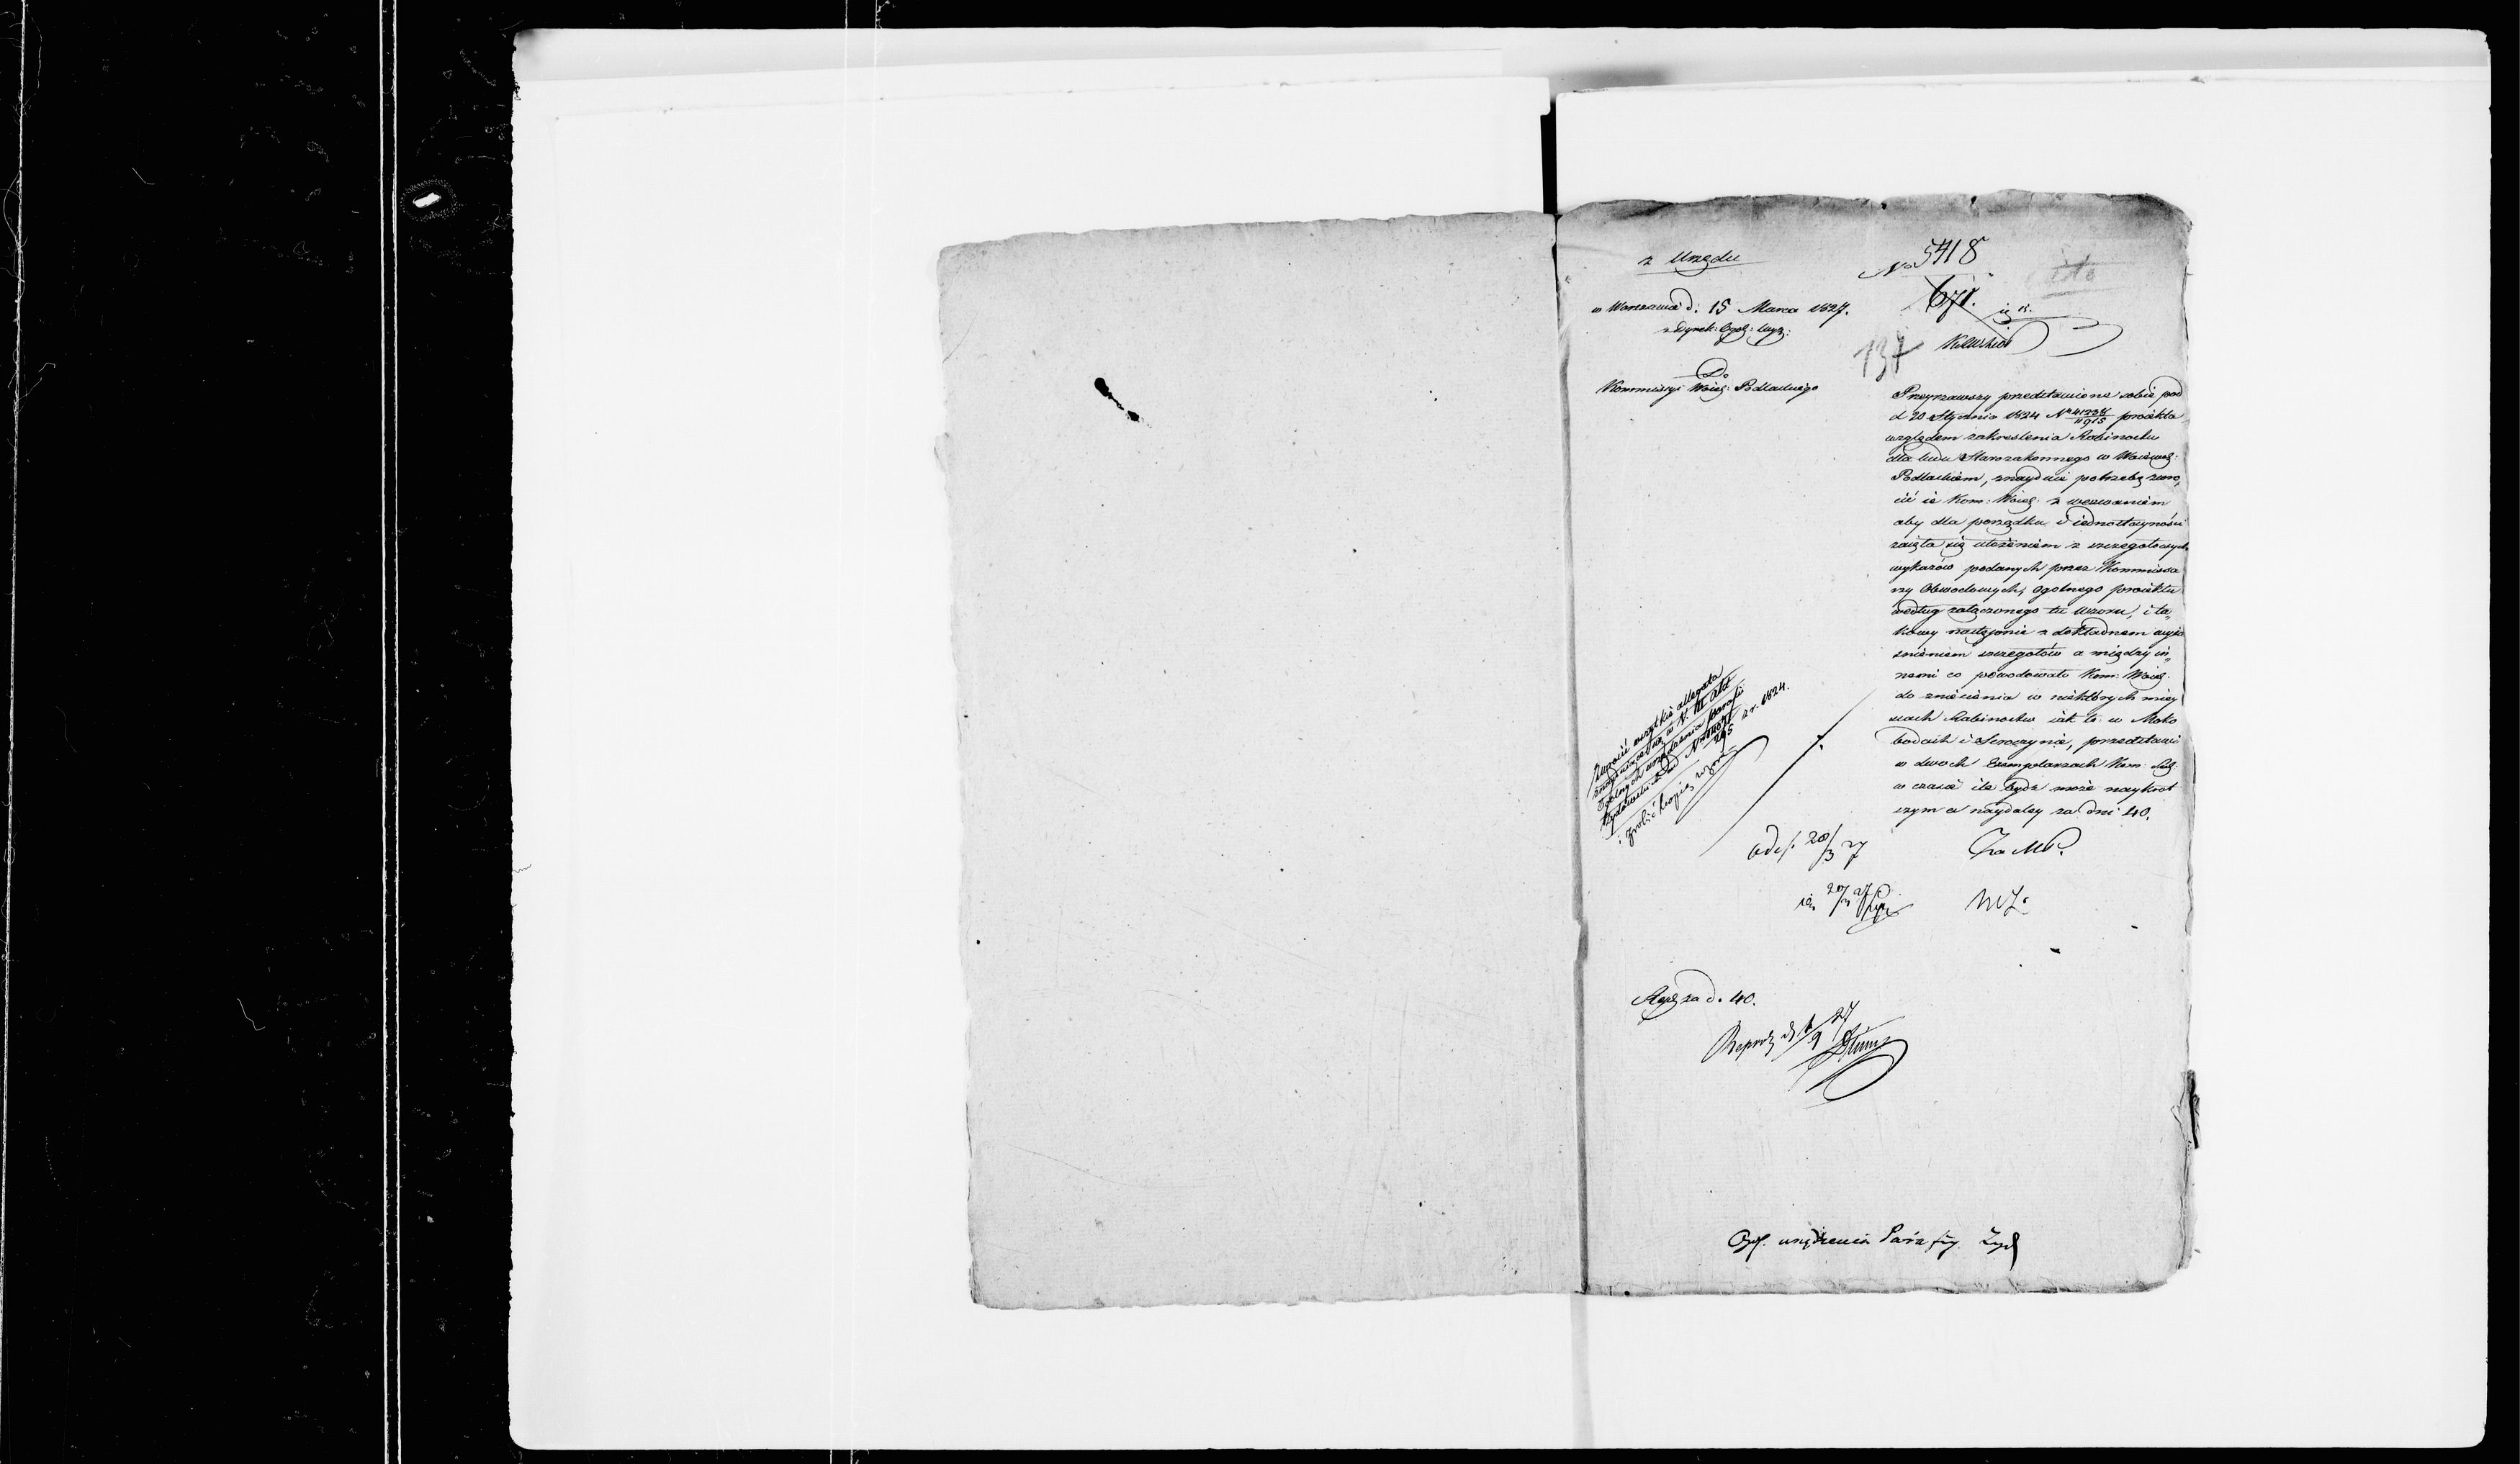 z Urzędu
w Warszawie d: 15 Marca 1827.
Do
Kommissyi Woiew: Podlaskiego
No 5418
671.
137
Przeyrzawszy przedstawione sobie pod
d 20 Stycznia 1824 No proiekta
względem zakreslenia Rabinostw
dla ludu Starozakonnego w Woiewodz:
Podlaskiem, znayduie potrzebę zwró„
cić ie Kom: Woiew: z wezwaniem
aby dla porządku i iednostayności
zaięła się ułożeniem z szczegołowych
wykazów podanych przez Kommissa
rzy Obwodowych, ogolnego proiektu
według załączonego tu wzoru, i ta„
kowy następnie z dokładnem wyia
snieniem szczegołów a między in„
nemi co powodowało Kom: Woiew:
do zniesienia w niektórych miey
scach Rabinostw iak to w Moko
bodach i Seroczynie, przedstawi
w dwoch Exemplarzach Kom: Rząd:
w czasie ile bydź może naykrot
szym a naydaley za dni 40.
Zwrócić wszystkie allegata
znayduiące się w N. III Akt
Ogólnych urządzenia parafii
z r. 1824.
i zrobić kopię wzoru
Odesł. 20/3 27
Za M P.
20/3 27
Rep: za d. 40.
Reprod:
Ogól. urządzenia Parafiy. Żyd